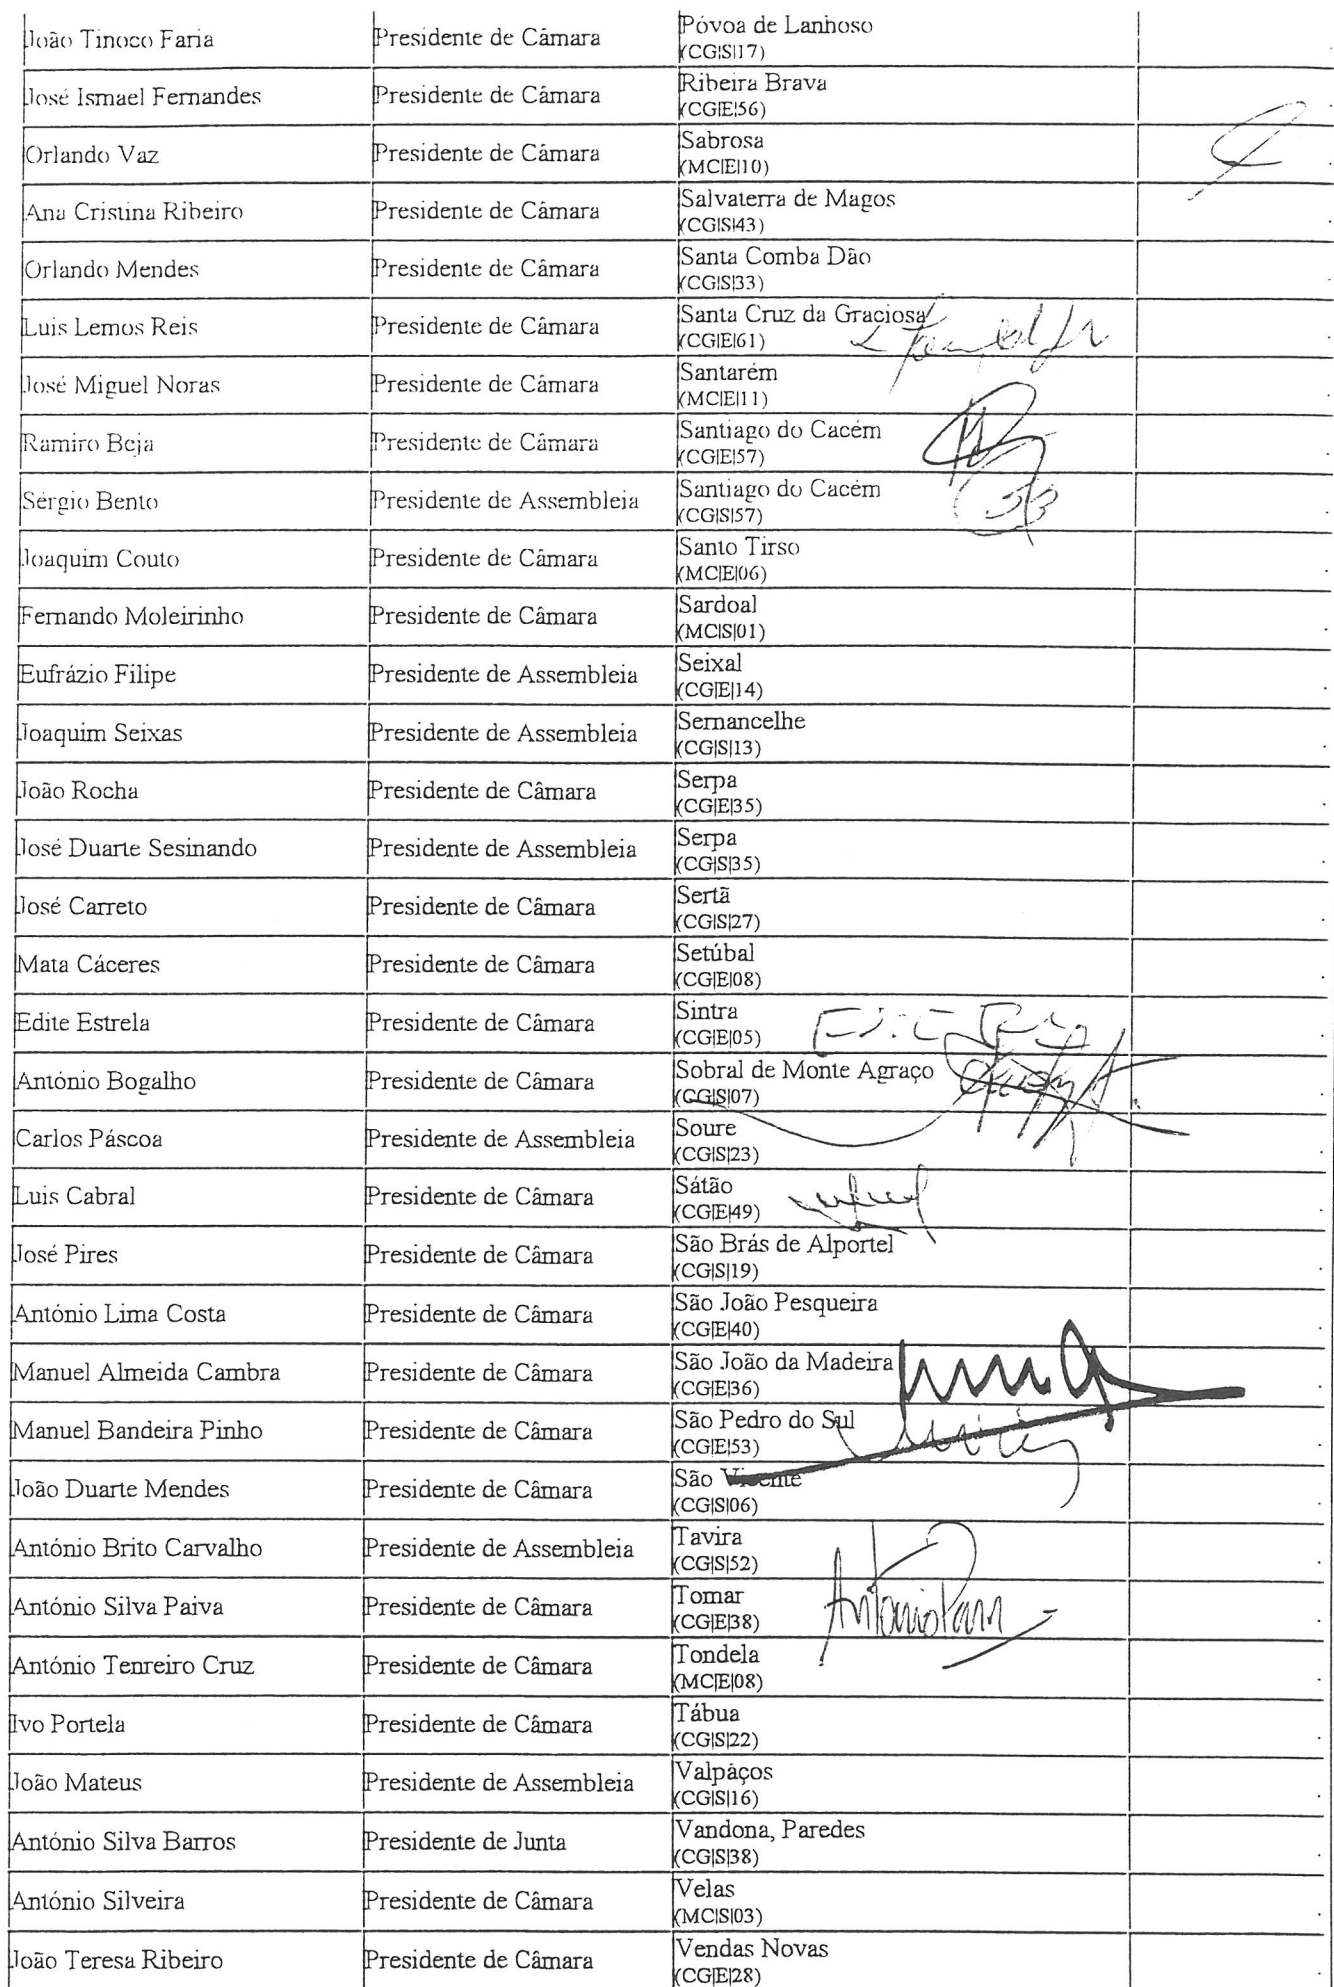 João Tinoco Faria Presidente de Câmara Póvoa de Lanhoso
(CG|S|17)
José Ismael Fernandes Presidente de Câmara Ribeira Brava
(CG|E|56)
Orlando Vaz Presidente de Câmara Sabrosa
(MC|E|10)
Ana Cristina Ribeiro Presidente de Câmara Salvaterra de Magos
(CG|S|43)
Orlando Mendes Presidente de Câmara Santa Comba Dão
(CG|S|33)
Luis Lemos Reis Presidente de Câmara Santa Cruz da Graciosa
(CG|E|61)
José Miguel Noras Presidente de Câmara Santarém
(MC|E|11)
Ramiro Beja Presidente de Câmara Santiago do Cacém
(CG|E|57)
Sérgio Bento Presidente de Assembleia Santiago do Cacém
(CG|S|57)
Joaquim Couto Presidente de Câmara Santo Tirso
(MC|E|06)
Fernando Moleirinho Presidente de Câmara Sardoal
(MC|S|01)
Eufrázio Filipe Presidente de Assembleia Seixal
(CG|E|14)
Joaquim Seixas Presidente de Assembleia Sernancelhe
(CG|S|13)
João Rocha Presidente de Câmara Serpa
(CG|E|35)
José Duarte Sesinando Presidente de Assembleia Serpa
(CG|S|35)
José Carreto Presidente de Câmara Sertã
(CG|S|27)
Mata Cáceres Presidente de Câmara Setúbal
(CG|E|08)
Edite Estrela Presidente de Câmara Sintra
(CG|E|05)
António Bogalho Presidente de Câmara Sobral de Monte Agraço
(CG|S|07)
Carlos Páscoa Presidente de Assembleia Soure
(CG|S|23)
Luis Cabral Presidente de Câmara Sátão
(CG|E|49)
José Pires Presidente de Câmara São Brás de Alportel
(CG|S|19)
António Lima Costa Presidente de Câmara São João Pesqueira
(CG|E|40)
Manuel Almeida Cambra Presidente de Câmara São João da Madeira
(CG|E|36)
Manuel Bandeira Pinho Presidente de Câmara São Pedro do Sul
(CG|E|53)
João Duarte Mendes Presidente de Câmara São Vicente
(CG|S|06)
António Brito Carvalho Presidente de Assembleia Tavira
(CG|S|52)
António Silva Paiva Presidente de Câmara Tomar
(CG|E|38)
António Tenreiro Cruz Presidente de Câmara Tondela
(MC|E|08)
Ivo Portela Presidente de Câmara Tábua
(CG|S|22)
João Mateus Presidente de Assembleia Valpaços
(CG|S|16)
António Silva Barros Presidente de Junta Vandona, Paredes
(CG|S|38)
António Silveira Presidente de Câmara Velas
(MC|S|03)
João Teresa Ribeiro Presidente de Câmara Vendas Novas
(CG|E|28)